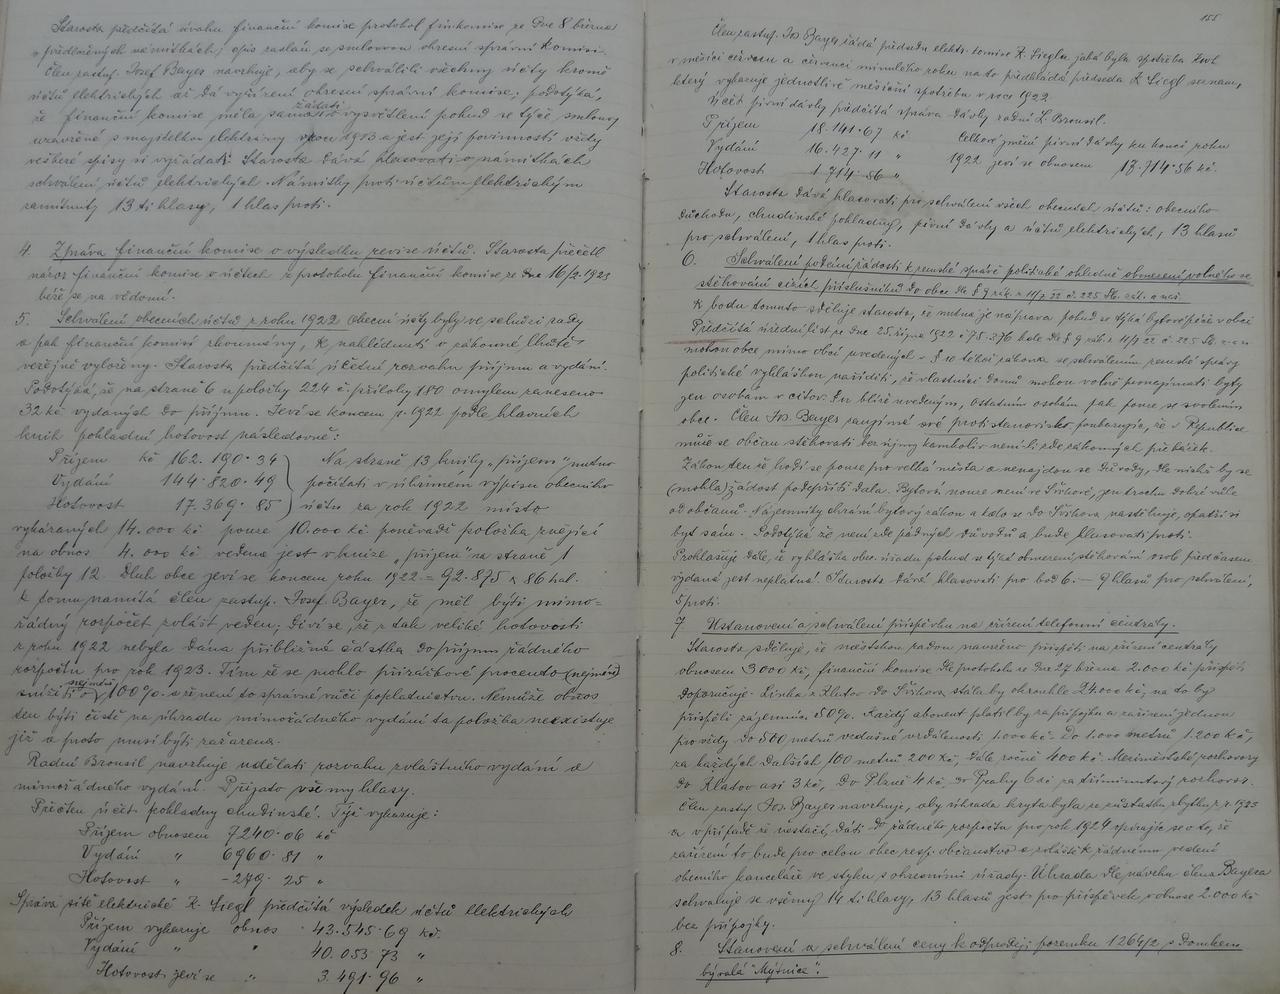 Starosta předčítá úvahu finanční komise protokol fin. komise ze dne 8 března
o předložených námitkách; opis zaslán se smlouvou okresní správní komisi.
Člen zastup. Josef Bayer navrhuje, aby se schválily všechny účty kromě
účtů elektrických až dá vyřízení okresní správní komise; podotýká,
že finanční komise měla sama žádati vysvětlení pokud se týče smlouvy
uzavřené s majitelkou elektrárny v roce 1913 a jest její povinností vždy
veškeré spisy si vyžádati. Starosta dává hlasovati o námitkách
schválení účtů elektrických. Námitky proti účtům elektrickým
zamítnuty 13 ti hlasy, 1 hlas proti.
4. Zpráva finanční komise o výsledku revise účtů. Starosta přečetl
názor finanční komise o účtech z protokolu finanční komise ze dne 16/2. 1923
béře se na vědomí.
5. Schválení obecních účtů z roku 1922. Obecní účty byly ve schůzi rady
a pak finanční komisí zkoumány, k nahlédnutí v zákonné lhůtě
veřejně vyloženy. Starosta předčítá účetní rozvahu příjmu a vydání.
Podotýká, že na straně 6 u položky 224 č. přílohy 180 omylem zaneseno
32 kč vydaných do příjmu. Jeví se koncem r. 1922 podle hlavních
knih pokladní hotovost následovně:
Příjem kč 162.190.34 Na straně 13 knihy „příjem" nutno
Vydání 144.820.49 počítati v úhrnném výpisu obecního
Hotovost 17.369.85 účtu za rok 1922 místo
vykázaných 14.000 kč pouze 10.000 kč poněvadž položka znějící
na obnos 4.000 kč vedena jest v knize „příjem" na straně 1
položky 12. Dluh obce jeví se koncem roku 1922 = 92.875 K 86 hal.
K tomu namítá člen zastup. Josef Bayer, že měl býti mimo-
řádný rozpočet zvlášť veden; diví se, že z tak veliké hotovosti
z roku 1922 nebyla dána přibližně částka do příjmu řádného
rozpočtu pro rok 1923. Tím že se mohlo přirážkové procento (nejméně)
snížiti nejméně o 100% a že není to správné vůči poplatnictvu. Nemůže obnos
ten býti čistě na úhradu mimořádného vydání ta položka neexistuje
již a proto musí býti zařazena.
Radní Brousil navrhuje udělati rozvahu zvláštního vydání a
mimořádného vydání. Přijato všemi hlasy.
Přečten účet pokladny chudinské. Týž vykazuje:
Příjem obnosem 7240.06 kč
Vydání „ 6960.81 „
Hotovost „ - 279.25 „
Správa sítě elektrické K. Siegl předčítá výsledek účtů elektrických
Příjem vykazuje obnos 43.545.69 kč.
Vydání „ „ 40.053.73 „
Hotovost jeví se „ 3.491.96 „
155
Člen zastup. Jos. Bayer žádá předsedu elektr. komise K. Siegla jaká byla spotřeba kwh
v měsíci červnu a červenci minulého roku na to předkládá předseda K. Siegl seznam,
který vykazuje jednotlivé měsíční spotřeby v roce 1922.
Účet pivní dávky předčítá správa dávky radní K. Brousil.
Příjem 18.141.67 kč Celkové jmění pivní dávky ku konci roku
Vydání 16.427.11 „ 1922 jeví se obnosem 17.714.56 kč.
Hotovost 1.714.56 „
Starosta dává hlasovati pro schválení všech obecních účtů: obecního
důchodu, chudinské pokladny, pivní dávky a účtů elektrických, 13 hlasů
pro schválení, 1 hlas proti.
6. Schválení podání žádosti k zemské správě politické ohledně obmezení volného se
stěhování cizích příslušníků do obce dle § 9 zák. z 11/7. 22 č. 225 Sb. zák. a nař.
K bodu tomuto sděluje starosta, že nutná je náprava pokud se týká bytové péče v obci
Předčítá úřední list ze dne 25. října 1922 č. 75.276 kole dle § 9 zák. z 11/7 22 č. 225 Sb. z. a n.
mohou obce mimo obcí uvedených § 10 téhož zákona se schválením zemské správy
politické vyhláškou naříditi, že vlastníci domů mohou volně pronajímati byty
jen osobám v citov. § blíže uvedeným, ostatním osobám pak pouze se svolením
obce. Člen Jos. Bayer zaujímá své protistanovisko poukazuje, že v Republice
může se občan stěhovati bez újmy kamkoliv není-li zde zákonných překážek.
Zákon ten že hodí se pouze pro velká města a nenajdou se důvody, dle nichž by se
(mohla) žádost podepříti dala. Bytová nouze není ve Švihově, jen trochu dobré vůle
od občanů. Nájemníky chrání bytový zákon a kdo se do Švihova nastěhuje, opatří si
byt sám. Podotýká že není zde pádných důvodů a bude hlasovati proti.
Prohlašuje dále, že vyhláška obec. úřadu pokud se týká obmezení stěhování osob předčasem
vydaná jest neplatná. Starosta dává hlasovati pro bod 6. — 9 hlasů pro schválení,
5 proti.
7 Ustanovení a schválení příspěvku na zřízení telefonní centraly.
Starosta sděluje, že městskou radou navrženo přispěti na zřízení centraly
obnosem 3000 kč, finanční komise dle protokolu ze dne 27 března 2.000 kč přispěti
doporučuje. Linka z Klatov do Švihova stála by okrouhle 24.000 kč, na to by
přispěli zájemníci 50%. Každý abonent platil by za přípojku a zařízení jednou
pro vždy do 500 metrů vzdušné vzdálenosti 1.000 kč. Do 1.000 metrů 1.200 kč,
za každých dalších 100 metrů 200 kč, dále ročně 400 kč. Meziměstské rozhovory
do Klatov asi 3 kč, do Plzně 4 kč, do Prahy 6 kč za tříminutový rozhovor.
Člen zastup. Jos. Bayer navrhuje, aby úhrada kryta byla ze zůstatku zbytku z r. 1923
a v případě že nestačí, dáti do řádného rozpočtu pro rok 1924 opíraje se o to, že
zařízení to bude pro celou obec resp. občanstvo a zvláště k řádnému vedení
obecního kanceláře ve styku s okresními úřady. Úhrada dle návrhu člena Bayera
schvaluje se všemi 14 ti hlasy, 13 hlasů jest pro příspěvek v obnose 2.000 kč
bez přípojky.
8. Stanovení a schválení ceny k odprodeji pozemku 1264/2 s domkem
bývalá „Mýtnice".